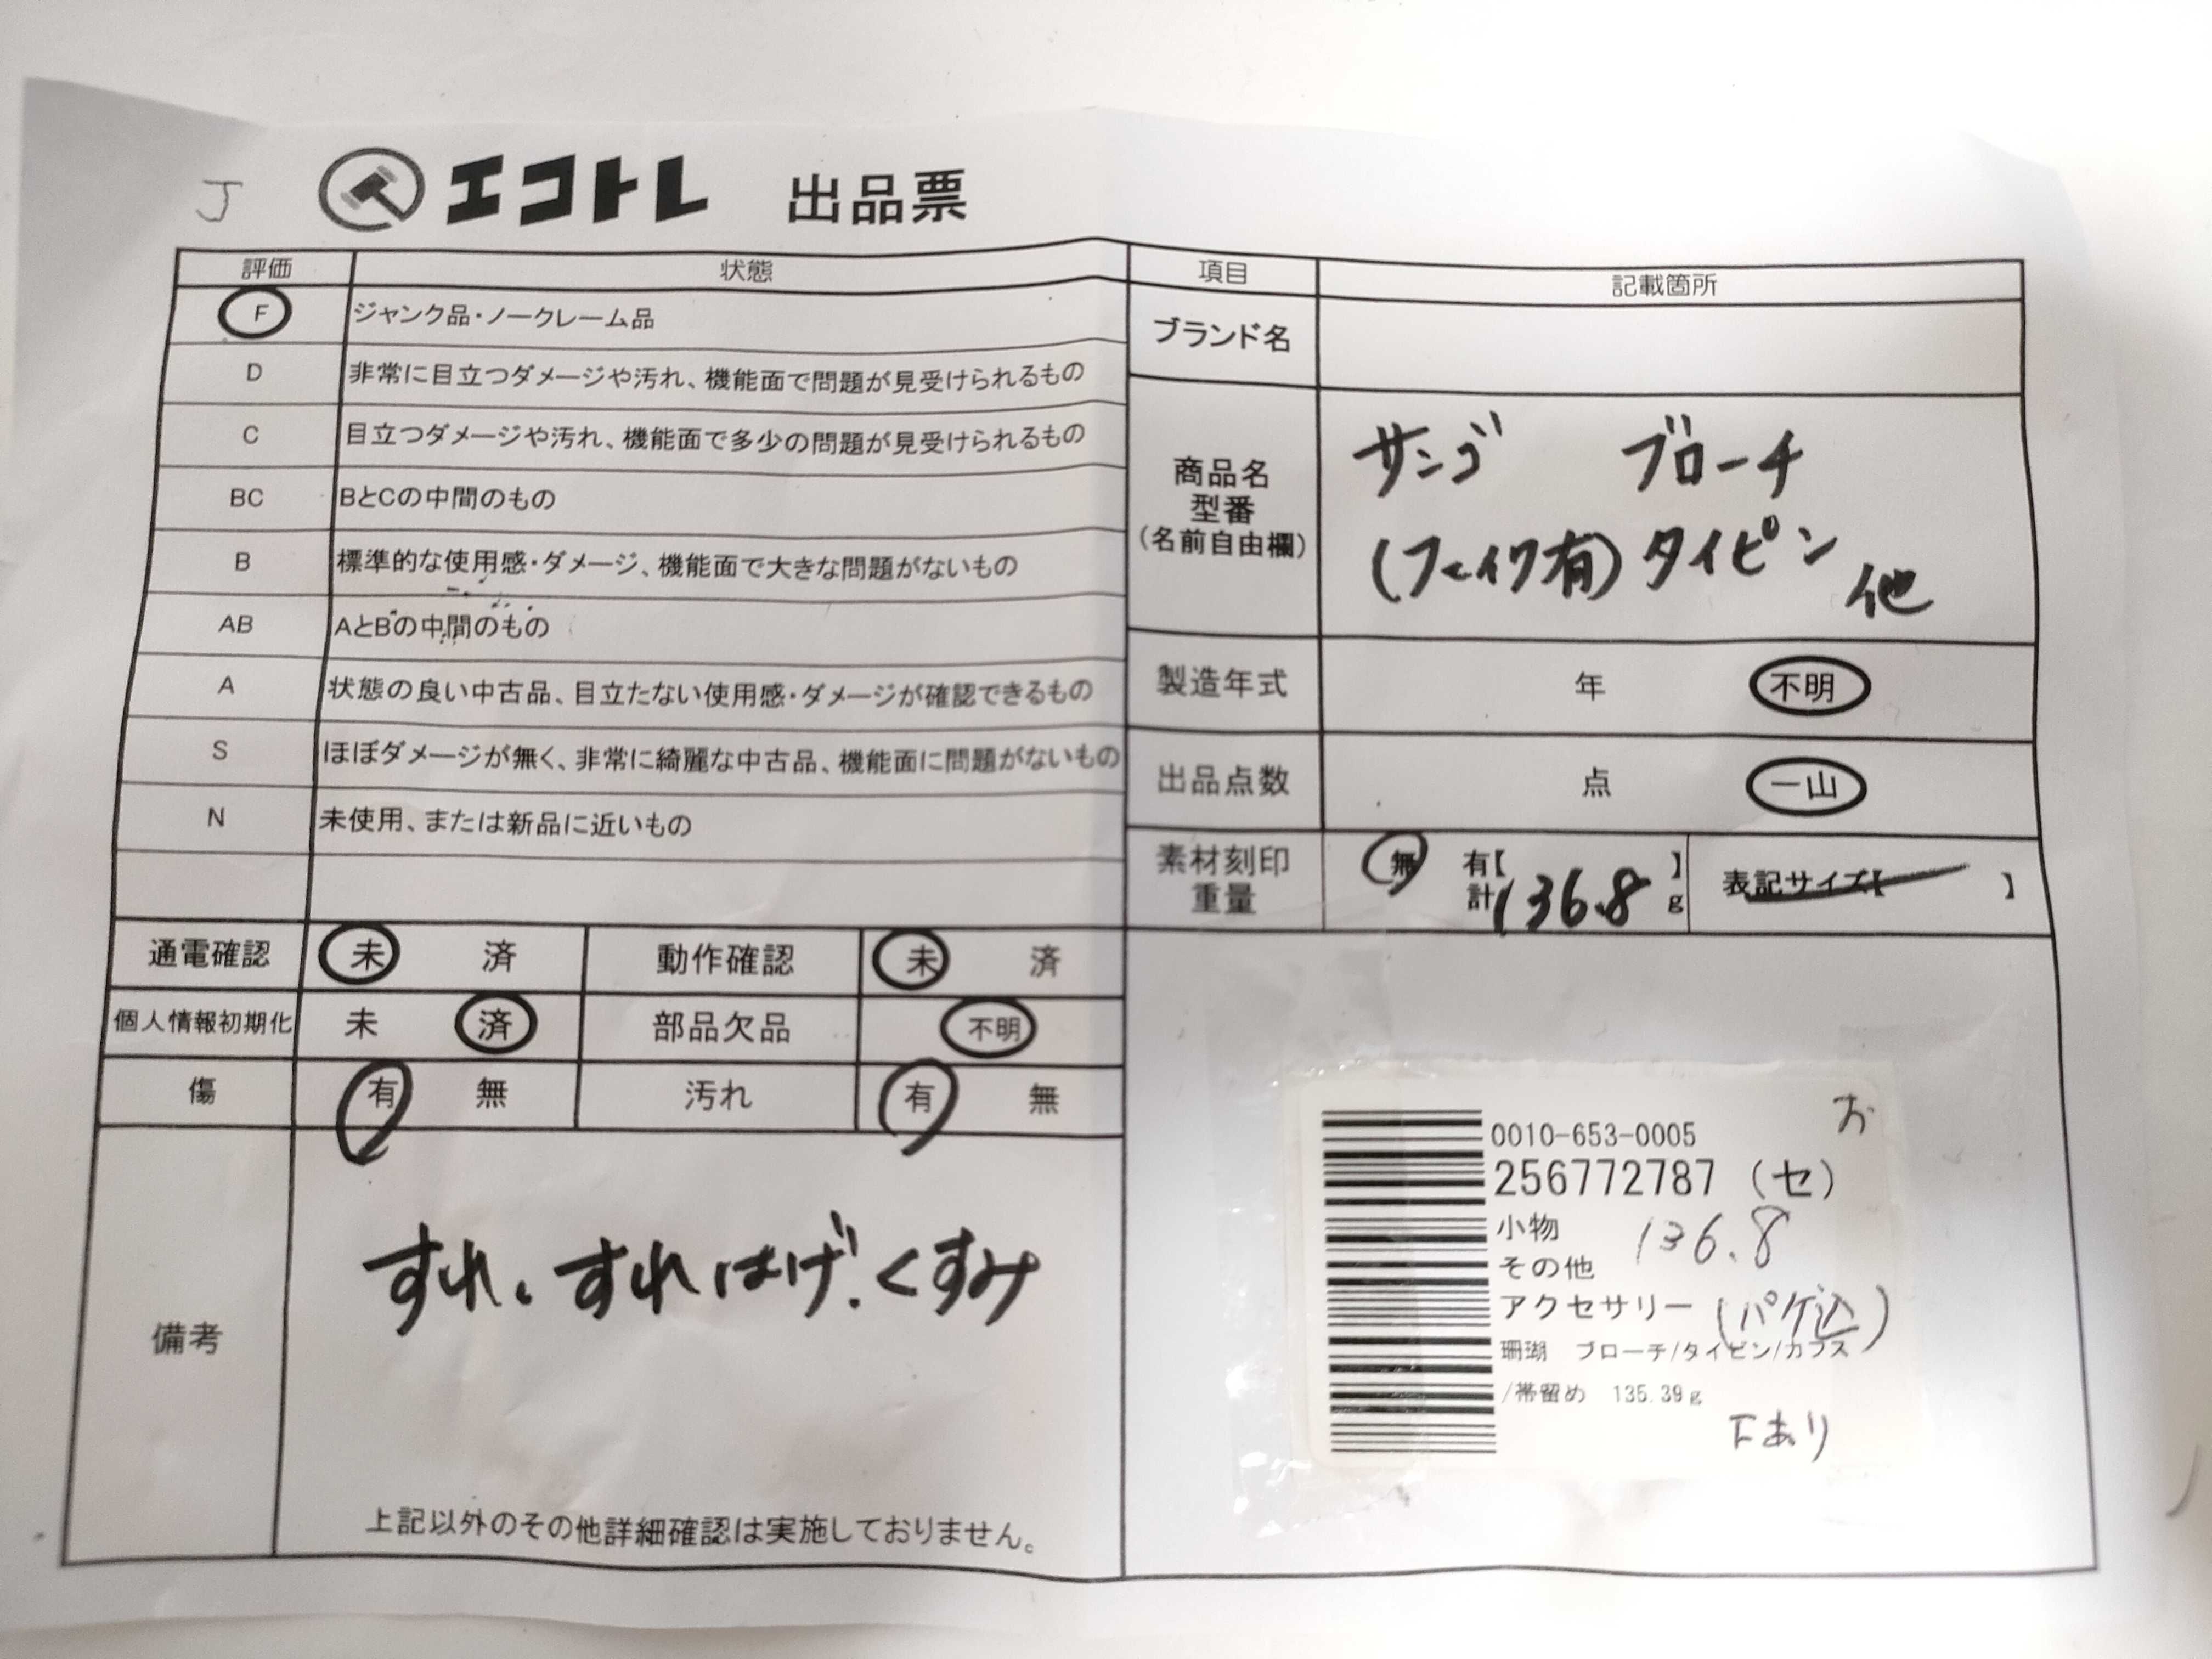 J
エコトレ 出品票
評価 状態
F ジャンク品・ノークレーム品
D 非常に目立つダメージや汚れ、機能面で問題が見受けられるもの
C 目立つダメージや汚れ、機能面で多少の問題が見受けられるもの
BC BとCの中間のもの
B 標準的な使用感・ダメージ、機能面で大きな問題がないもの
AB AとBの中間のもの
A 状態の良い中古品、目立たない使用感・ダメージが確認できるもの
S ほぼダメージが無く、非常に綺麗な中古品、機能面に問題がないもの
N 未使用、または新品に近いもの
通電確認 未 済 動作確認 未 済
個人情報初期化 未 済 部品欠品 不明
傷 有 無 汚れ 有 無
備考
すれ、すれはげ、くすみ
上記以外のその他詳細確認は実施しておりません。
項目 記載箇所
ブランド名
商品名
型番
(名前自由欄)
サンゴ ブローチ
(フェイク有) タイピン
他
製造年式 年 不明
出品点数 点 一山
素材刻印
重量
無 有【 】
計 136.8 g
表記サイズ【 】
お
0010-653-0005
256772787 (セ)
小物 136.8
その他
アクセサリー (パケ込)
珊瑚 ブローチ/タイピン/カフス
/帯留め 135.39g
Fあり